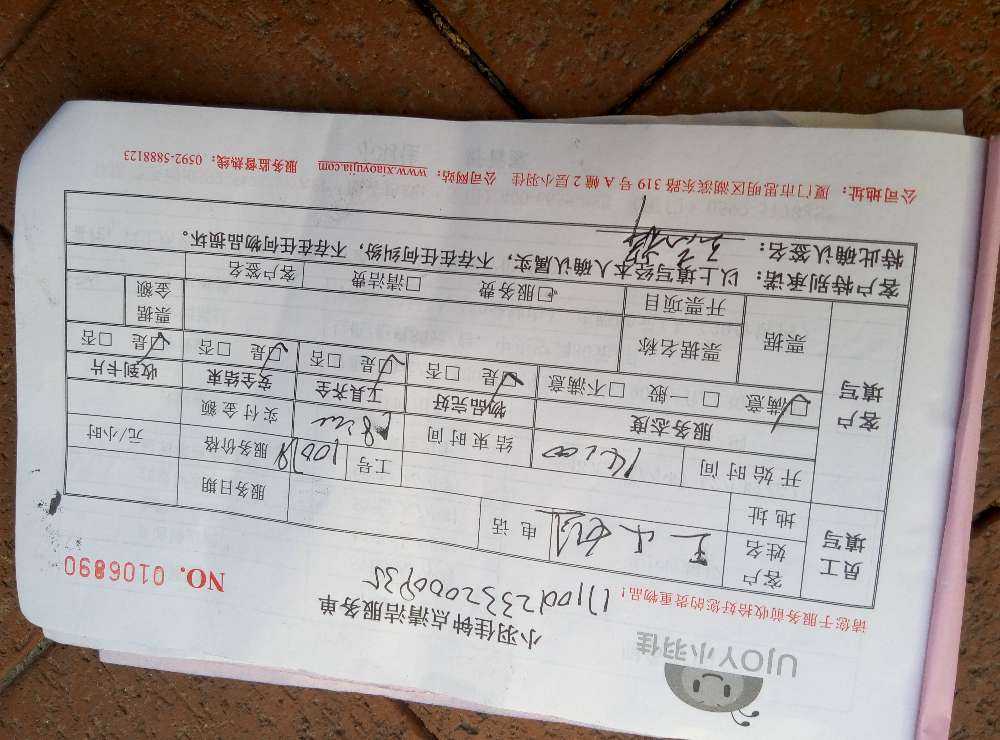 UJOY小羽佳
小羽佳钟点清洁服务单
请您于服务前收拾好您的贵重物品！
NO. 0106890
员工填写
客户姓名
电话
服务日期
地址
工号
服务价格
元/小时
开始时间
结束时间
实付金额
客户填写
服务态度 物品完好 工具齐全 安全结束 收到卡片
☑满意 □一般 □不满意 ☑是 □否 ☑是 □否 ☑是 □否 ☑是 □否
票据 票据名称 票据金额
开票项目 □服务费 □清洁费 客户签名
客户特别承诺：以上填写经本人确认属实，不存在任何纠纷，不存在任何物品损坏。
特此确认签名：
公司地址：厦门市思明区湖滨东路 319 号 A 幢 2 层小羽佳 公司网站：www.xiaoyujia.com 服务监督热线：0592-5888123